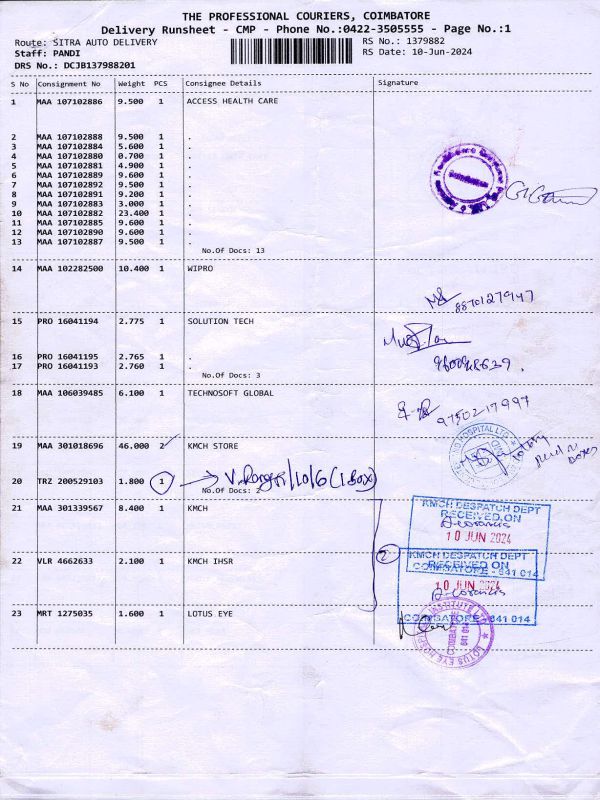 THE PROFESSIONAL COURIERS, COIMBATORE
Delivery Runsheet - CMP - Phone No.:0422-3505555 - Page No.:1
Route: SITRA AUTO DELIVERY RS No.: 1379882
Staff: PANDI RS Date: 10-Jun-2024
DRS No.: DCJB137988201
S No Consignment No Weight PCS Consignee Details Signature
1 MAA 107102886 9.500 1 ACCESS HEALTH CARE
2 MAA 107102888 9.500 1 .
3 MAA 107102884 5.600 1 .
4 MAA 107102880 0.700 1 .
5 MAA 107102881 4.900 1 .
6 MAA 107102889 9.600 1 .
7 MAA 107102892 9.500 1 .
8 MAA 107102891 9.200 1 .
9 MAA 107102883 3.000 1 .
10 MAA 107102882 23.400 1 .
11 MAA 107102885 9.600 1 .
12 MAA 107102890 9.600 1 .
13 MAA 107102887 9.500 1 .
No.Of Docs: 13
14 MAA 102282500 10.400 1 WIPRO
8870127947
15 PRO 16041194 2.775 1 SOLUTION TECH
16 PRO 16041195 2.765 1 .
17 PRO 16041193 2.760 1 .
No.Of Docs: 3
18 MAA 106039485 6.100 1 TECHNOSOFT GLOBAL
9750217997
19 MAA 301018696 46.000 2 KMCH STORE
20 TRZ 200529103 1.800 1 (1 Box)
No.Of Docs: 2
21 MAA 301339567 8.400 1 KMCH
KMCH DESPATCH DEPT
RECEIVED ON
10 JUN 2024
22 VLR 4662633 2.100 1 KMCH IHSR
2
KMCH DESPATCH DEPT
RECEIVED ON
COIMBATORE - 641 014
10 JUN 2024
23 MRT 1275035 1.600 1 LOTUS EYE
COIMBATORE - 641 014